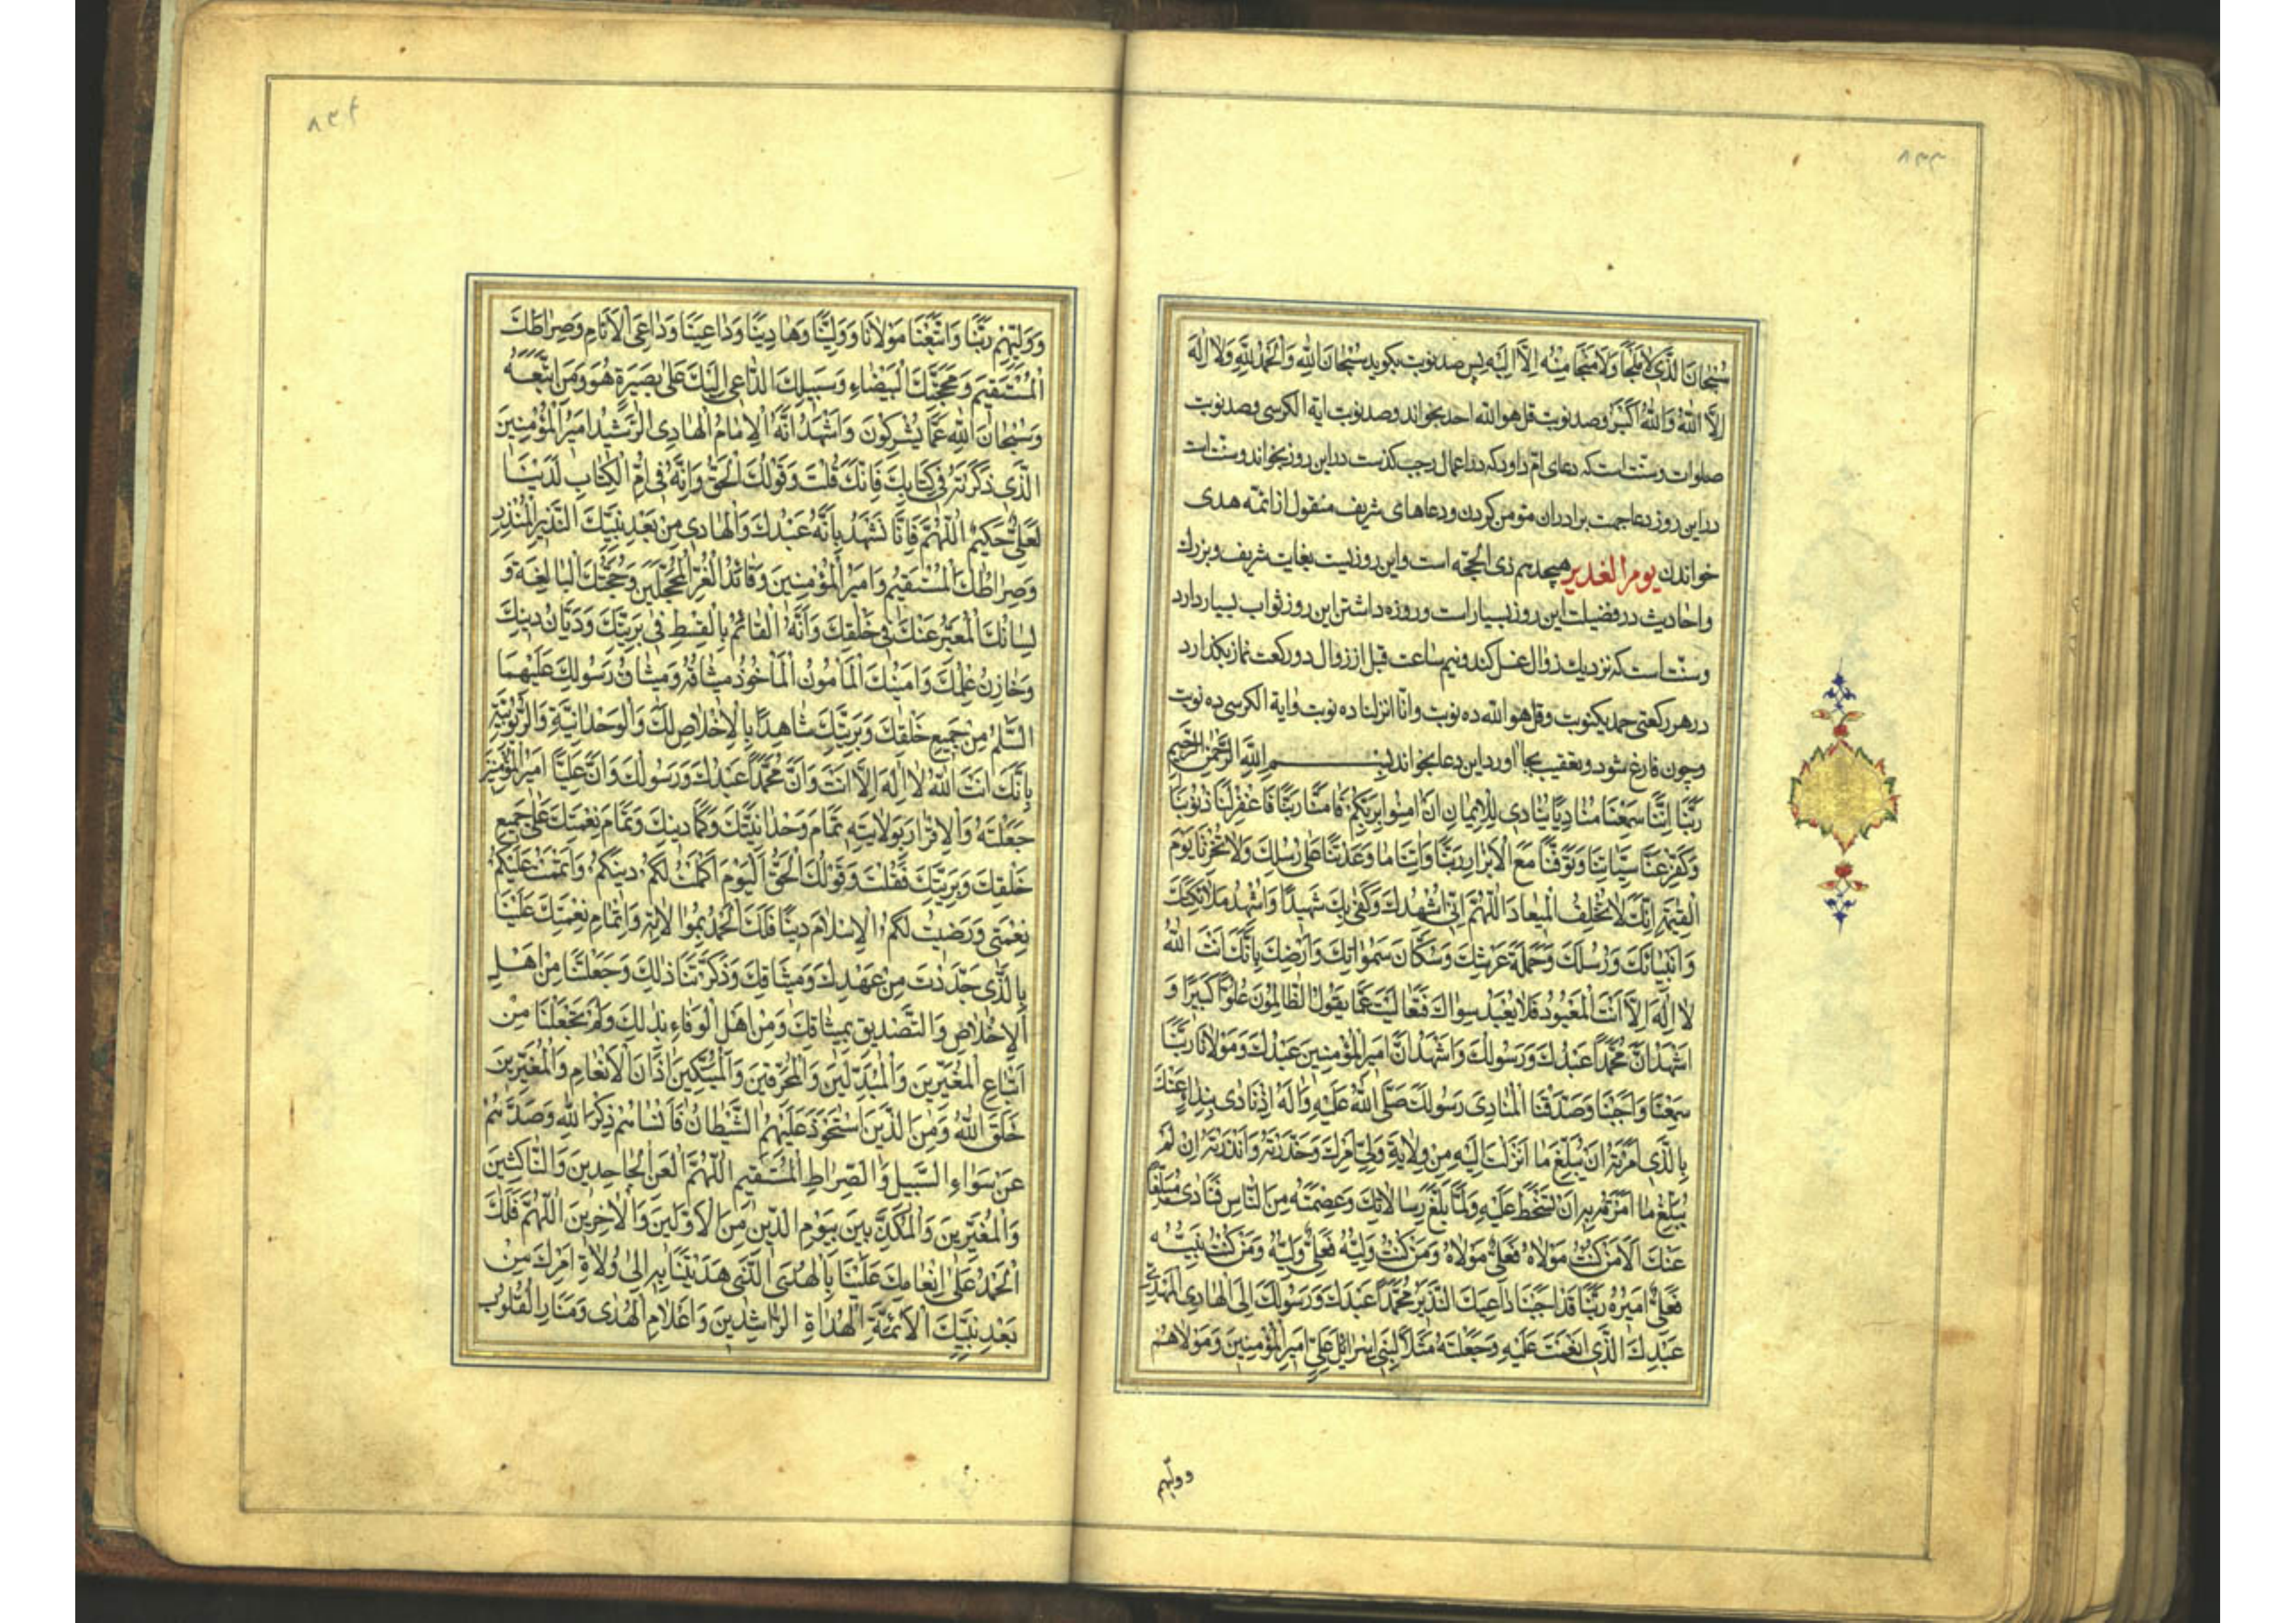 ۸۳۳
سُبْحَانَ الَّذِی لَا مَلْجَأَ وَلَا مَنْجَا مِنْهُ اِلَّا اِلَیْهِ پس صد نوبت بکوید سُبْحَانَ اللهِ وَالْحَمْدُ لِلّهِ وَلَا اِلٰهَ
اِلَّا اللهُ وَاللهُ اَکْبَرُ وصد نوبت قل هو الله احد بخواند وصد نوبت ایة الکرسی وصد نوبت
صلوات وسنّت است که دعای امّ داود که در اعمال رجب کذشت در این روز بخواند وسنّت است
در این روز دعا جهت برادران مؤمن کردن ودعاهای شریف منقول از ائمّه هدی
خواندن یوم الغدیر هیجدهم ذی الحجّه است واین روزیست بغایت شریف وبزرك
واحادیث در فضیلت این روز بسیار است وروزه داشتن این روز ثواب بسیار دارد
وسنّت است که نزدیك زوال غسل کند ونیم ساعت قبل از زوال دو رکعت نماز بکذارد
در هر رکعتی حمد یکنوبت وقل هو الله ده نوبت وانّا انزلناه ده نوبت وایة الکرسی ده نوبت
وچون فارغ شود وتعقیب بجا اورد این دعا بخواند بِسْمِ اللهِ الرَّحْمٰنِ الرَّحِیمِ
رَبَّنَا اِنَّنَا سَمِعْنَا مُنَادِیًا یُنَادِی لِلْاِیمَانِ اَنْ اٰمِنُوا بِرَبِّکُمْ فَاٰمَنَّا رَبَّنَا فَاغْفِرْ لَنَا ذُنُوبَنَا
وَکَفِّرْ عَنَّا سَیِّئَاتِنَا وَتَوَفَّنَا مَعَ الْاَبْرَارِ رَبَّنَا وَاٰتِنَا مَا وَعَدْتَنَا عَلٰی رُسُلِكَ وَلَا تُخْزِنَا یَوْمَ
الْقِیٰمَةِ اِنَّكَ لَا تُخْلِفُ الْمِیعَادَ اَللّٰهُمَّ اِنِّی اُشْهِدُكَ وَکَفٰی بِكَ شَهِیدًا وَاُشْهِدُ مَلَائِکَتَكَ
وَاَنْبِیَائَكَ وَرُسُلَكَ وَحَمَلَةَ عَرْشِكَ وَسُکَّانَ سَمٰوَاتِكَ وَاَرْضِكَ بِاَنَّكَ اَنْتَ اللهُ
لَا اِلٰهَ اِلَّا اَنْتَ الْمَعْبُودُ فَلَا یُعْبَدُ سِوَاكَ فَتَعَالَیْتَ عَمَّا یَقُولُ الظَّالِمُونَ عُلُوًّا کَبِیرًا وَ
اَشْهَدُ اَنَّ مُحَمَّدًا عَبْدُكَ وَرَسُولُكَ وَاَشْهَدُ اَنَّ اَمِیرَ الْمُؤْمِنِینَ عَبْدُكَ وَمَوْلَانَا رَبَّنَا
سَمِعْنَا وَاَجَبْنَا وَصَدَّقْنَا الْمُنَادِیَ رَسُولَكَ صَلَّی اللهُ عَلَیْهِ وَاٰلِهِ اِذْ نَادٰی بِنِدَاءٍ عَنْكَ
بِالَّذِی اَمَرْتَهُ اَنْ یُبَلِّغَ مَا اَنْزَلْتَ اِلَیْهِ مِنْ وِلَایَةِ وَلِیِّ اَمْرِكَ وَحَذَّرْتَهُ وَاَنْذَرْتَهُ اِنْ لَمْ
یُبَلِّغْ مَا اَمَرْتَهُ بِهِ اَنْ تَسْخَطَ عَلَیْهِ وَلَمَّا بَلَّغَ رِسَالَاتِكَ وَعَصَمْتَهُ مِنَ النَّاسِ فَنَادٰی مُبَلِّغًا
عَنْكَ اَلَا مَنْ کُنْتُ مَوْلَاهُ فَعَلِیٌّ مَوْلَاهُ وَمَنْ کُنْتُ وَلِیَّهُ فَعَلِیٌّ وَلِیُّهُ وَمَنْ کُنْتُ نَبِیَّهُ
فَعَلِیٌّ اَمِیرُهُ رَبَّنَا قَدْ اَجَبْنَا دَاعِیَكَ النَّذِیرَ مُحَمَّدًا عَبْدَكَ وَرَسُولَكَ اِلَی الْهَادِی الْمَهْدِیِّ
عَبْدِكَ الَّذِی اَنْعَمْتَ عَلَیْهِ وَجَعَلْتَهُ مَثَلًا لِبَنِی اِسْرَائِیلَ عَلِیٍّ اَمِیرِ الْمُؤْمِنِینَ وَمَوْلَاهُمْ
وولیّهم
۸۳۴
وَوَلِیِّهِمْ رَبَّنَا وَاتَّبَعْنَا مَوْلَانَا وَوَلِیَّنَا وَهَادِیَنَا وَدَاعِیَنَا وَدَاعِیَ الْاَنَامِ وَصِرَاطَكَ
الْمُسْتَقِیمَ وَمَحَجَّتَكَ الْبَیْضَاءَ وَسَبِیلَكَ الدَّاعِیَ اِلَیْكَ عَلٰی بَصِیرَةٍ هُوَ وَمَنِ اتَّبَعَهُ
وَسُبْحَانَ اللهِ عَمَّا یُشْرِکُونَ وَاَشْهَدُ اَنَّهُ الْاِمَامُ الْهَادِی الرَّشِیدُ اَمِیرُ الْمُؤْمِنِینَ
الَّذِی ذَکَرْتَهُ فِی کِتَابِكَ فَاِنَّكَ قُلْتَ وَقَوْلُكَ الْحَقُّ وَاِنَّهُ فِی اُمِّ الْکِتَابِ لَدَیْنَا
لَعَلِیٌّ حَکِیمٌ اَللّٰهُمَّ فَاِنَّا نَشْهَدُ بِاَنَّهُ عَبْدُكَ وَالْهَادِی مِنْ بَعْدِ نَبِیِّكَ النَّذِیرِ الْمُنْذِرِ
وَصِرَاطُكَ الْمُسْتَقِیمُ وَاَمِیرُ الْمُؤْمِنِینَ وَقَائِدُ الْغُرِّ الْمُحَجَّلِینَ وَحُجَّتُكَ الْبَالِغَةُ وَ
لِسَانُكَ الْمُعَبِّرُ عَنْكَ فِی خَلْقِكَ وَاَنَّهُ الْقَائِمُ بِالْقِسْطِ فِی بَرِیَّتِكَ وَدَیَّانُ دِینِكَ
وَخَازِنُ عِلْمِكَ وَاَمِینُكَ الْمَاْمُونُ الْمَاْخُوذُ مِیثَاقُهُ وَمِیثَاقُ رَسُولِكَ عَلَیْهِمَا
السَّلَمُ مِنْ جَمِیعِ خَلْقِكَ وَبَرِیَّتِكَ شَاهِدًا بِالْاِخْلَاصِ لَكَ وَالْوَحْدَانِیَّةِ وَالرُّبُوبِیَّةِ
بِاَنَّكَ اَنْتَ اللهُ لَا اِلٰهَ اِلَّا اَنْتَ وَاَنَّ مُحَمَّدًا عَبْدُكَ وَرَسُولُكَ وَاَنَّ عَلِیًّا اَمِیرُ الْمُؤْمِنِینَ
جَعَلْتَهُ وَالْاِقْرَارَ بِوِلَایَتِهِ تَمَامَ وَحْدَانِیَّتِكَ وَکَمَالَ دِینِكَ وَتَمَامَ نِعْمَتِكَ عَلٰی جَمِیعِ
خَلْقِكَ وَبَرِیَّتِكَ فَقُلْتَ وَقَوْلُكَ الْحَقُّ اَلْیَوْمَ اَکْمَلْتُ لَکُمْ دِینَکُمْ وَاَتْمَمْتُ عَلَیْکُمْ
نِعْمَتِی وَرَضِیتُ لَکُمُ الْاِسْلَامَ دِینًا فَلَكَ الْحَمْدُ بِمُوَالَاتِهِ وَاِتْمَامِ نِعْمَتِكَ عَلَیْنَا
بِالَّذِی جَدَّدْتَ مِنْ عَهْدِكَ وَمِیثَاقِكَ وَذَکَّرْتَنَا ذٰلِكَ وَجَعَلْتَنَا مِنْ اَهْلِ
الْاِخْلَاصِ وَالتَّصْدِیقِ بِمِیثَاقِكَ وَمِنْ اَهْلِ الْوَفَاءِ بِذٰلِكَ وَلَمْ تَجْعَلْنَا مِنْ
اَتْبَاعِ الْمُغَیِّرِینَ وَالْمُبَدِّلِینَ وَالْمُحَرِّفِینَ وَالْمُبَتِّکِینَ اٰذَانَ الْاَنْعَامِ وَالْمُغَیِّرِینَ
خَلْقَ اللهِ وَمِنَ الَّذِینَ اسْتَحْوَذَ عَلَیْهِمُ الشَّیْطَانُ فَاَنْسَاهُمْ ذِکْرَ اللهِ وَصَدَّهُمْ
عَنْ سَوَاءِ السَّبِیلِ وَالصِّرَاطِ الْمُسْتَقِیمِ اَللّٰهُمَّ الْعَنِ الْجَاحِدِینَ وَالنَّاکِثِینَ
وَالْمُغَیِّرِینَ وَالْمُکَذِّبِینَ بِیَوْمِ الدِّینِ مِنَ الْاَوَّلِینَ وَالْاٰخِرِینَ اَللّٰهُمَّ فَلَكَ
الْحَمْدُ عَلٰی اِنْعَامِكَ عَلَیْنَا بِالْهُدَی الَّذِی هَدَیْتَنَا بِهِ اِلٰی وُلَاةِ اَمْرِكَ مِنْ
بَعْدِ نَبِیِّكَ الْاَئِمَّةِ الْهُدَاةِ الرَّاشِدِینَ وَاَعْلَامِ الْهُدٰی وَمَنَارِ الْقُلُوبِ